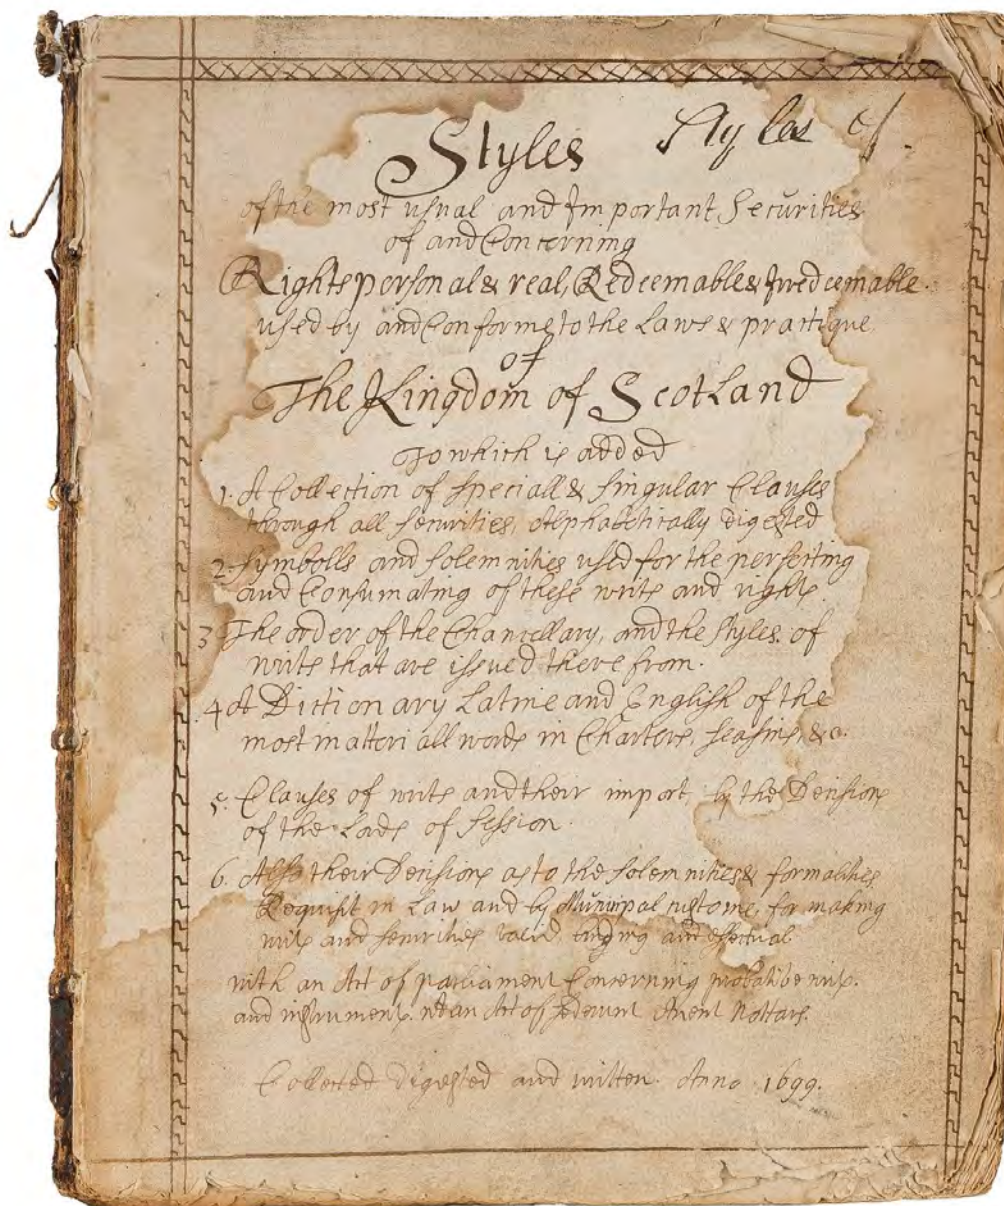 Styles Styles of
of the most usual and Important Securities
of and Concerning
Rights personal & real, Redeemable & Irredeemable
used by and Conforme to the Laws & practique
of
The Kingdom of Scotland
To which is added
1. A Collection of speciall & singular Clauses
through all securities, Alphabetically digested
2 Symbolls and solemnities used for the perfecting
and Consumating of these writs and rights.
3 The order of the Chancellary, and the styles of
writs that are issued there from.
4 A Dictionary Latine and English of the
most matteriall words in Charters, seasins, &c.
5. Clauses of writs and their import by the Decisions
of the Lods of Session.
6. Also their Decisions as to the solemnities & formalities
Requisit in Law and by Municipal customs, for making
writs and securities valid and effectual
with an Act of parliament Concerning probative writs.
and instruments. an Act of sederunt Anent Nottars.
Collected digested and written. Anno 1699.